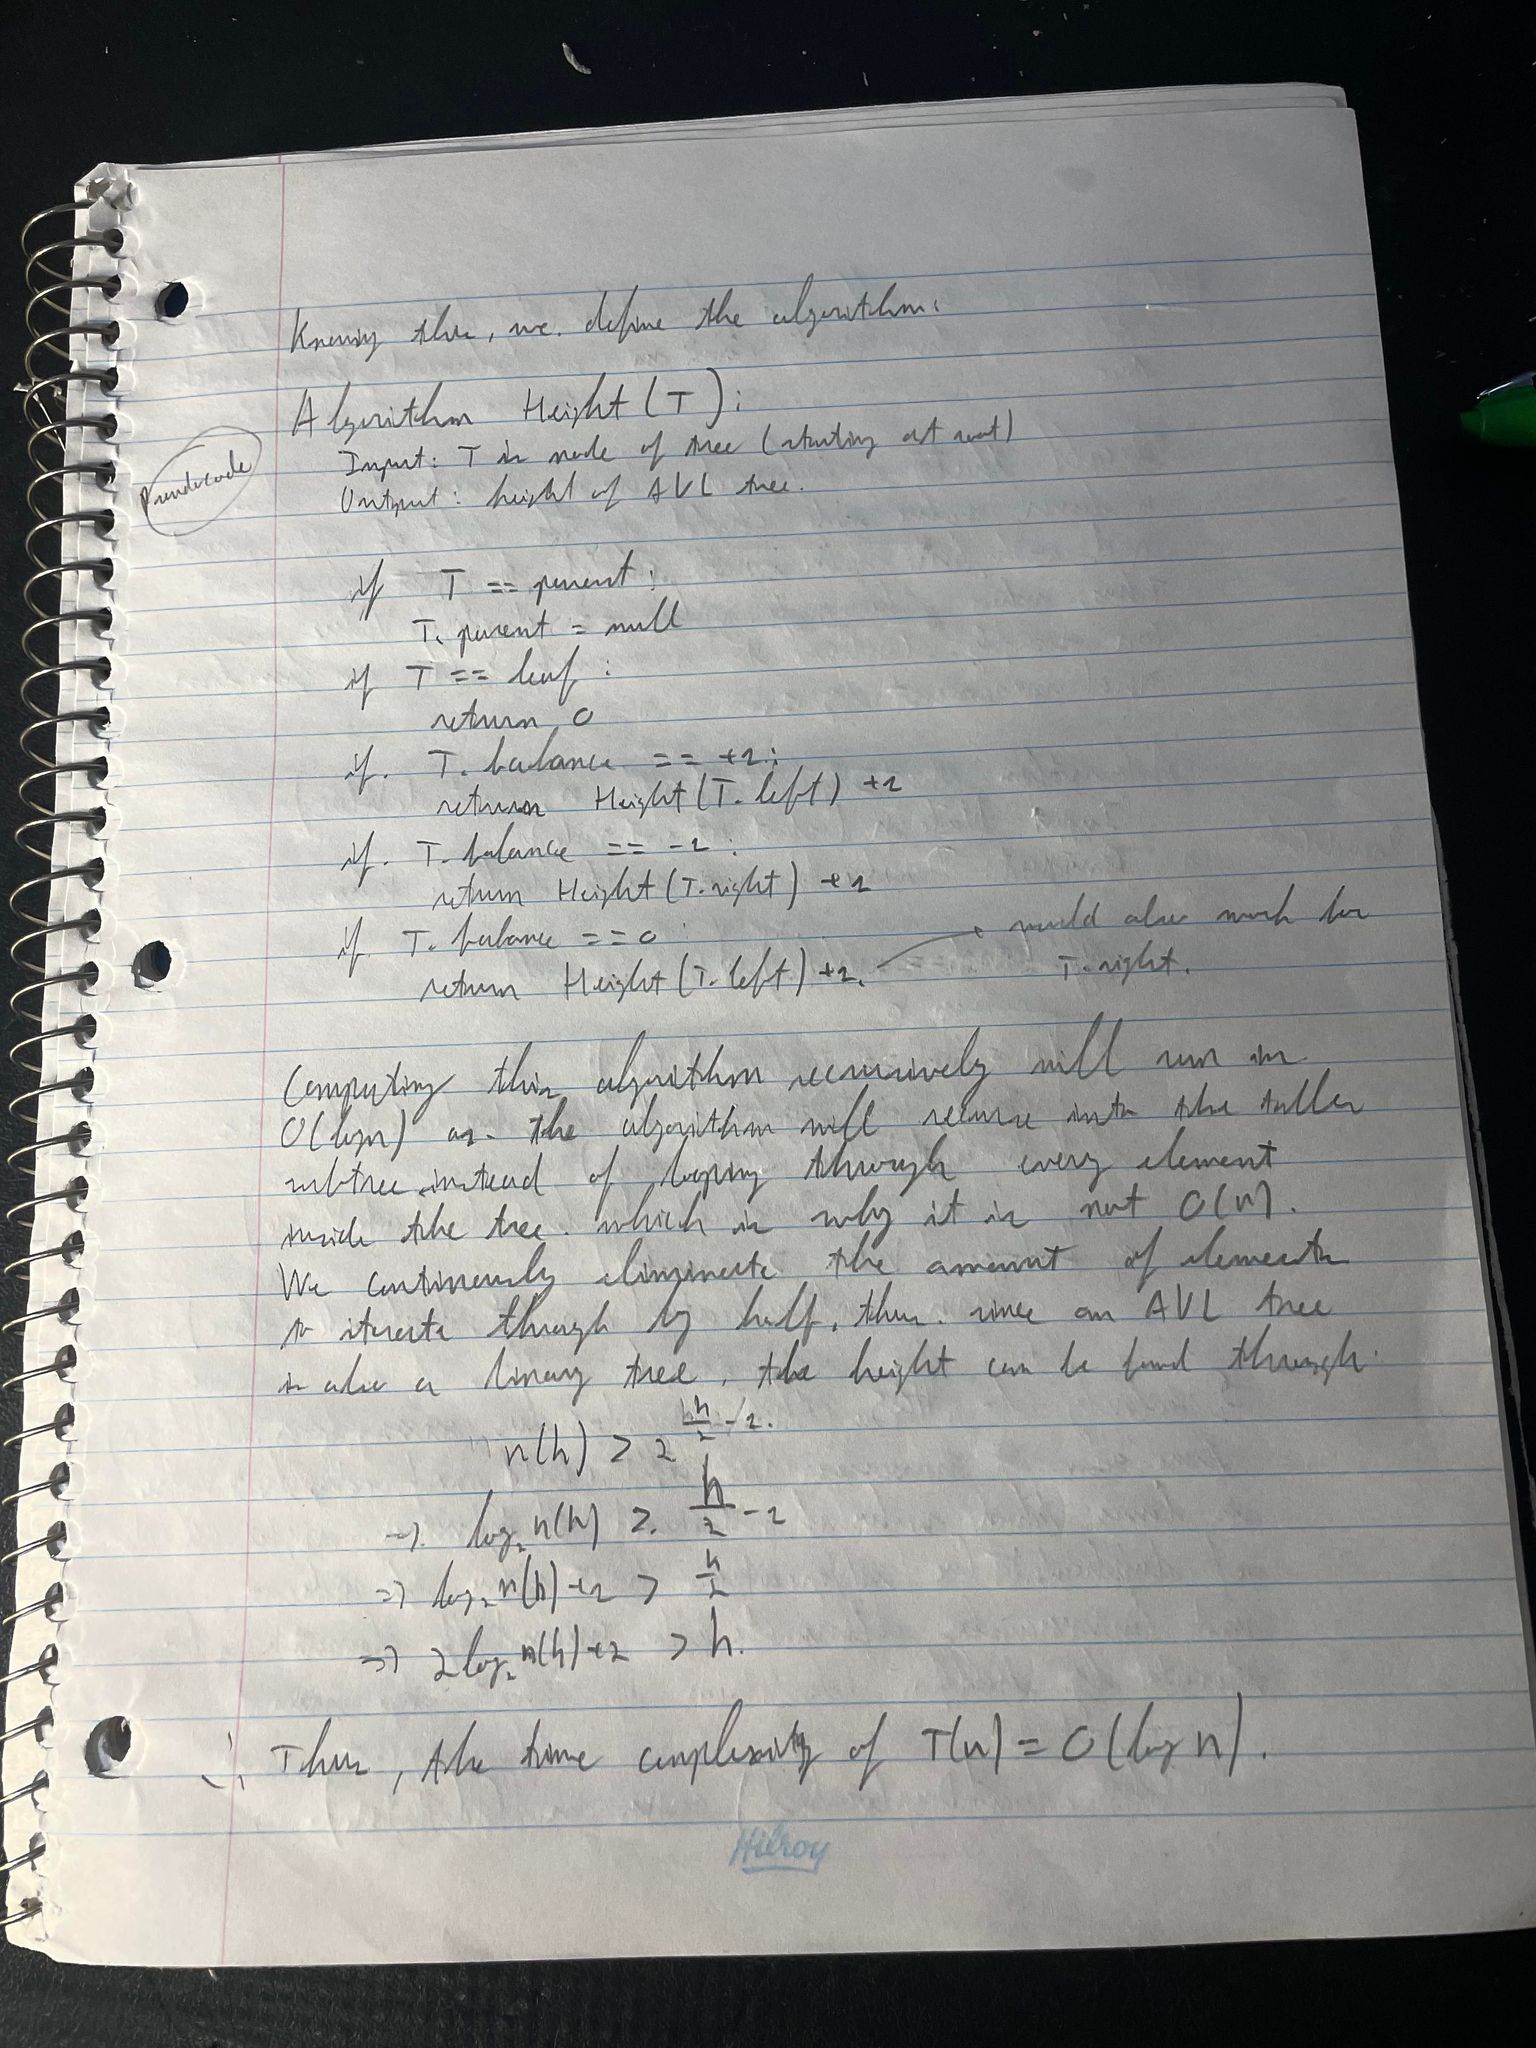 Knowing this, we define the algorithm:
Algorithm Height(T):
Input: T is node of tree (starting at root)
Pseudocode
Output: height of AVL tree.
if T == parent:
T.parent = null
if T == leaf:
return 0
if T.balance == +1:
return Height(T.left) +1
if T.balance == -1:
return Height(T.right) +1
if T.balance == 0:
return Height(T.left) +1. → would also work for
T.right.
Computing this algorithm recursively will run in
O(logn) as the algorithm will recurse into the taller
subtree instead of looping through every element
inside the tree which is why it is not O(n).
We continously eliminate the amount of elements
to iterate through by half, thus since an AVL tree
is also a binary tree, the height can be found through
n(h) > 2^(h/2 - 1).
=> log₂ n(h) > h/2 - 1
=> log₂ n(h) + 1 > h/2
=> 2log₂ n(h) + 2 > h.
∴ Thus, the time complexity of T(n) = O(log n).
Hilroy